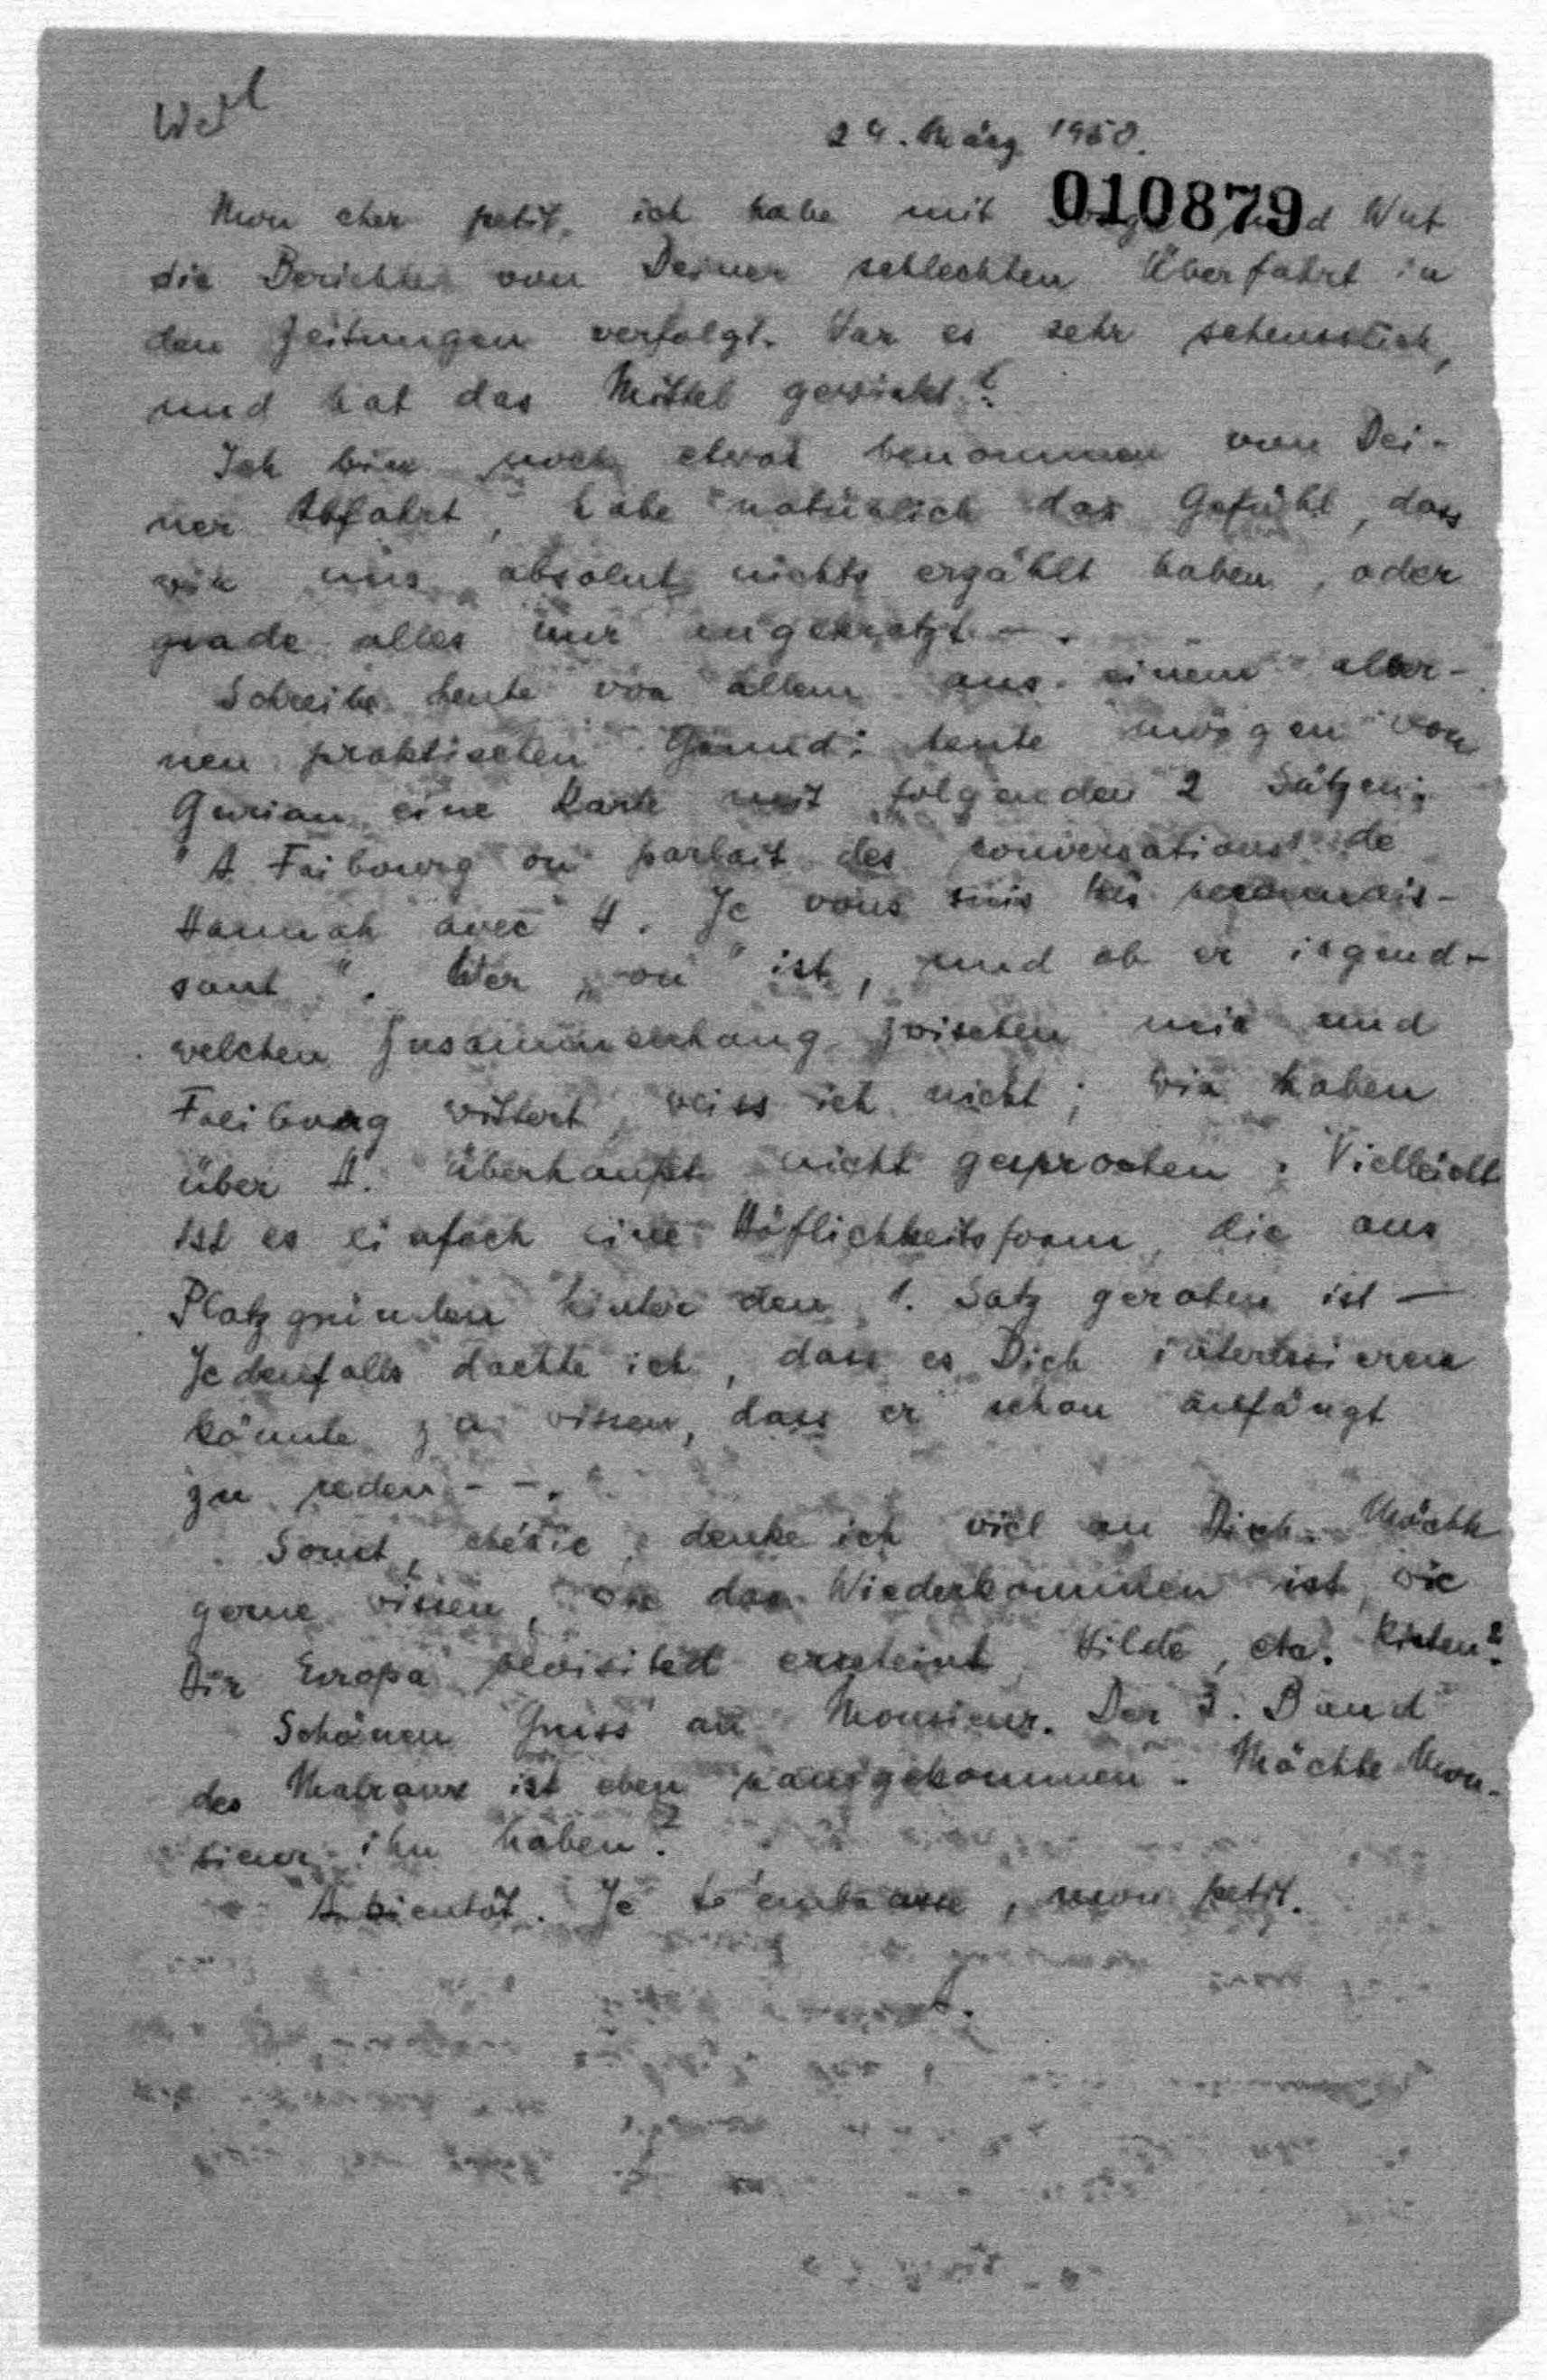 Weil
24. März 1950.
010879
Mon cher petit, ich habe mit Wut
die Berichte von Deiner schlechten Überfahrt in
den Zeitungen verfolgt. War es sehr scheusslich,
und hat das Mittel gewirkt?
Ich bin noch etwas benommen von Dei-
ner Abfahrt, habe natürlich das Gefühl, dass
wir uns absolut nichts erzählt haben, oder
grade alles nur angekratzt —.
Schreibe heute vor allem aus einem
nen praktischen Grund: heute morgen von
Gurian eine Karte mit folgenden 2 Sätzen:
"A Freibourg on parlait des conversations de
Hannah avec H. Je vous suis très reconnais-
sant". Wer "on" ist, und ob er irgend-
welchen Zusammenhang zwischen mir und
Freiburg wittert, weiss ich nicht; wir haben
über H. überhaupt nicht gesprochen. Vielleicht
ist es einfach eine Höflichkeitsform, die aus
Platzgründen hinter den 1. Satz geraten ist —
Jedenfalls dachte ich, dass es Dich interessieren
könnte zu wissen, dass er schon anfängt
zu reden - -.
Sonst, chérie, denke ich viel an Dich. Möchte
gerne wissen, wie das Wiederkommen ist, wie
Dir Europa revisited erscheint, Hilde, etc. Kisten?
Schönen Gruss an Monsieur. Der 3. Band
des Malraux ist eben rausgekommen. Möchte Mon-
sieur ihn haben?
A bientôt. Je t'embrasse, mon petit.